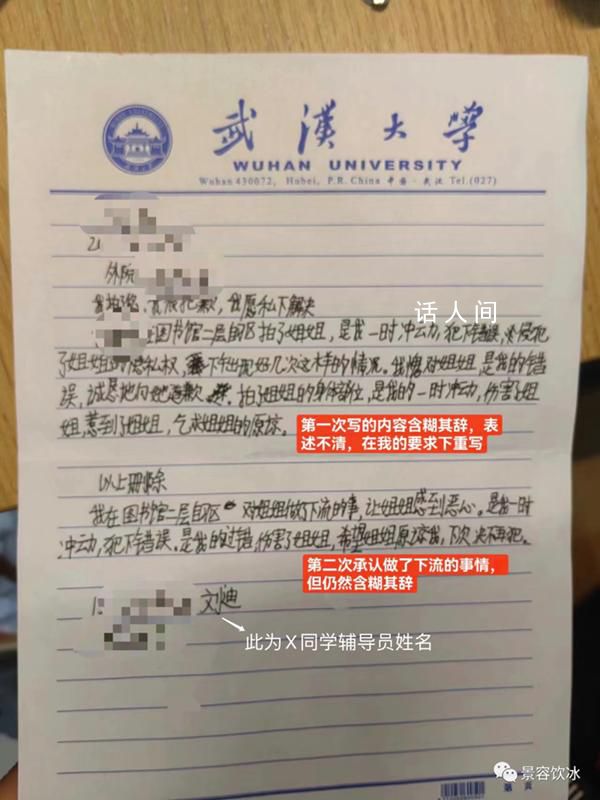 武漢大學
WUHAN UNIVERSITY
Wuhan 430072, Hubei, P.R. China 中国·武汉 Tel.(027)
外院
我愿私下解决
话人间
在图书馆二层自区拍了姐姐,是我一时冲动,犯下错误,侵犯
了姐姐的隐私权,下出现好几次这样的情况。我愧对姐姐,是我的错
误,诚恳地向她道歉。拍了姐姐的身体部位,是我的一时冲动,伤害了姐
姐,惹到了姐姐,乞求姐姐的原谅。
第一次写的内容含糊其辞,表
述不清,在我的要求下重写
以上删除
我在图书馆二层自区对姐姐做了下流的事,让姐姐感到恶心。是我一时
冲动,犯下错误。是我的过错,伤害了姐姐,希望姐姐原谅我,下次决不再犯。
第二次承认做了下流的事情,
但仍然含糊其辞
刘迪
此为X同学辅导员姓名
景容饮冰
第 页